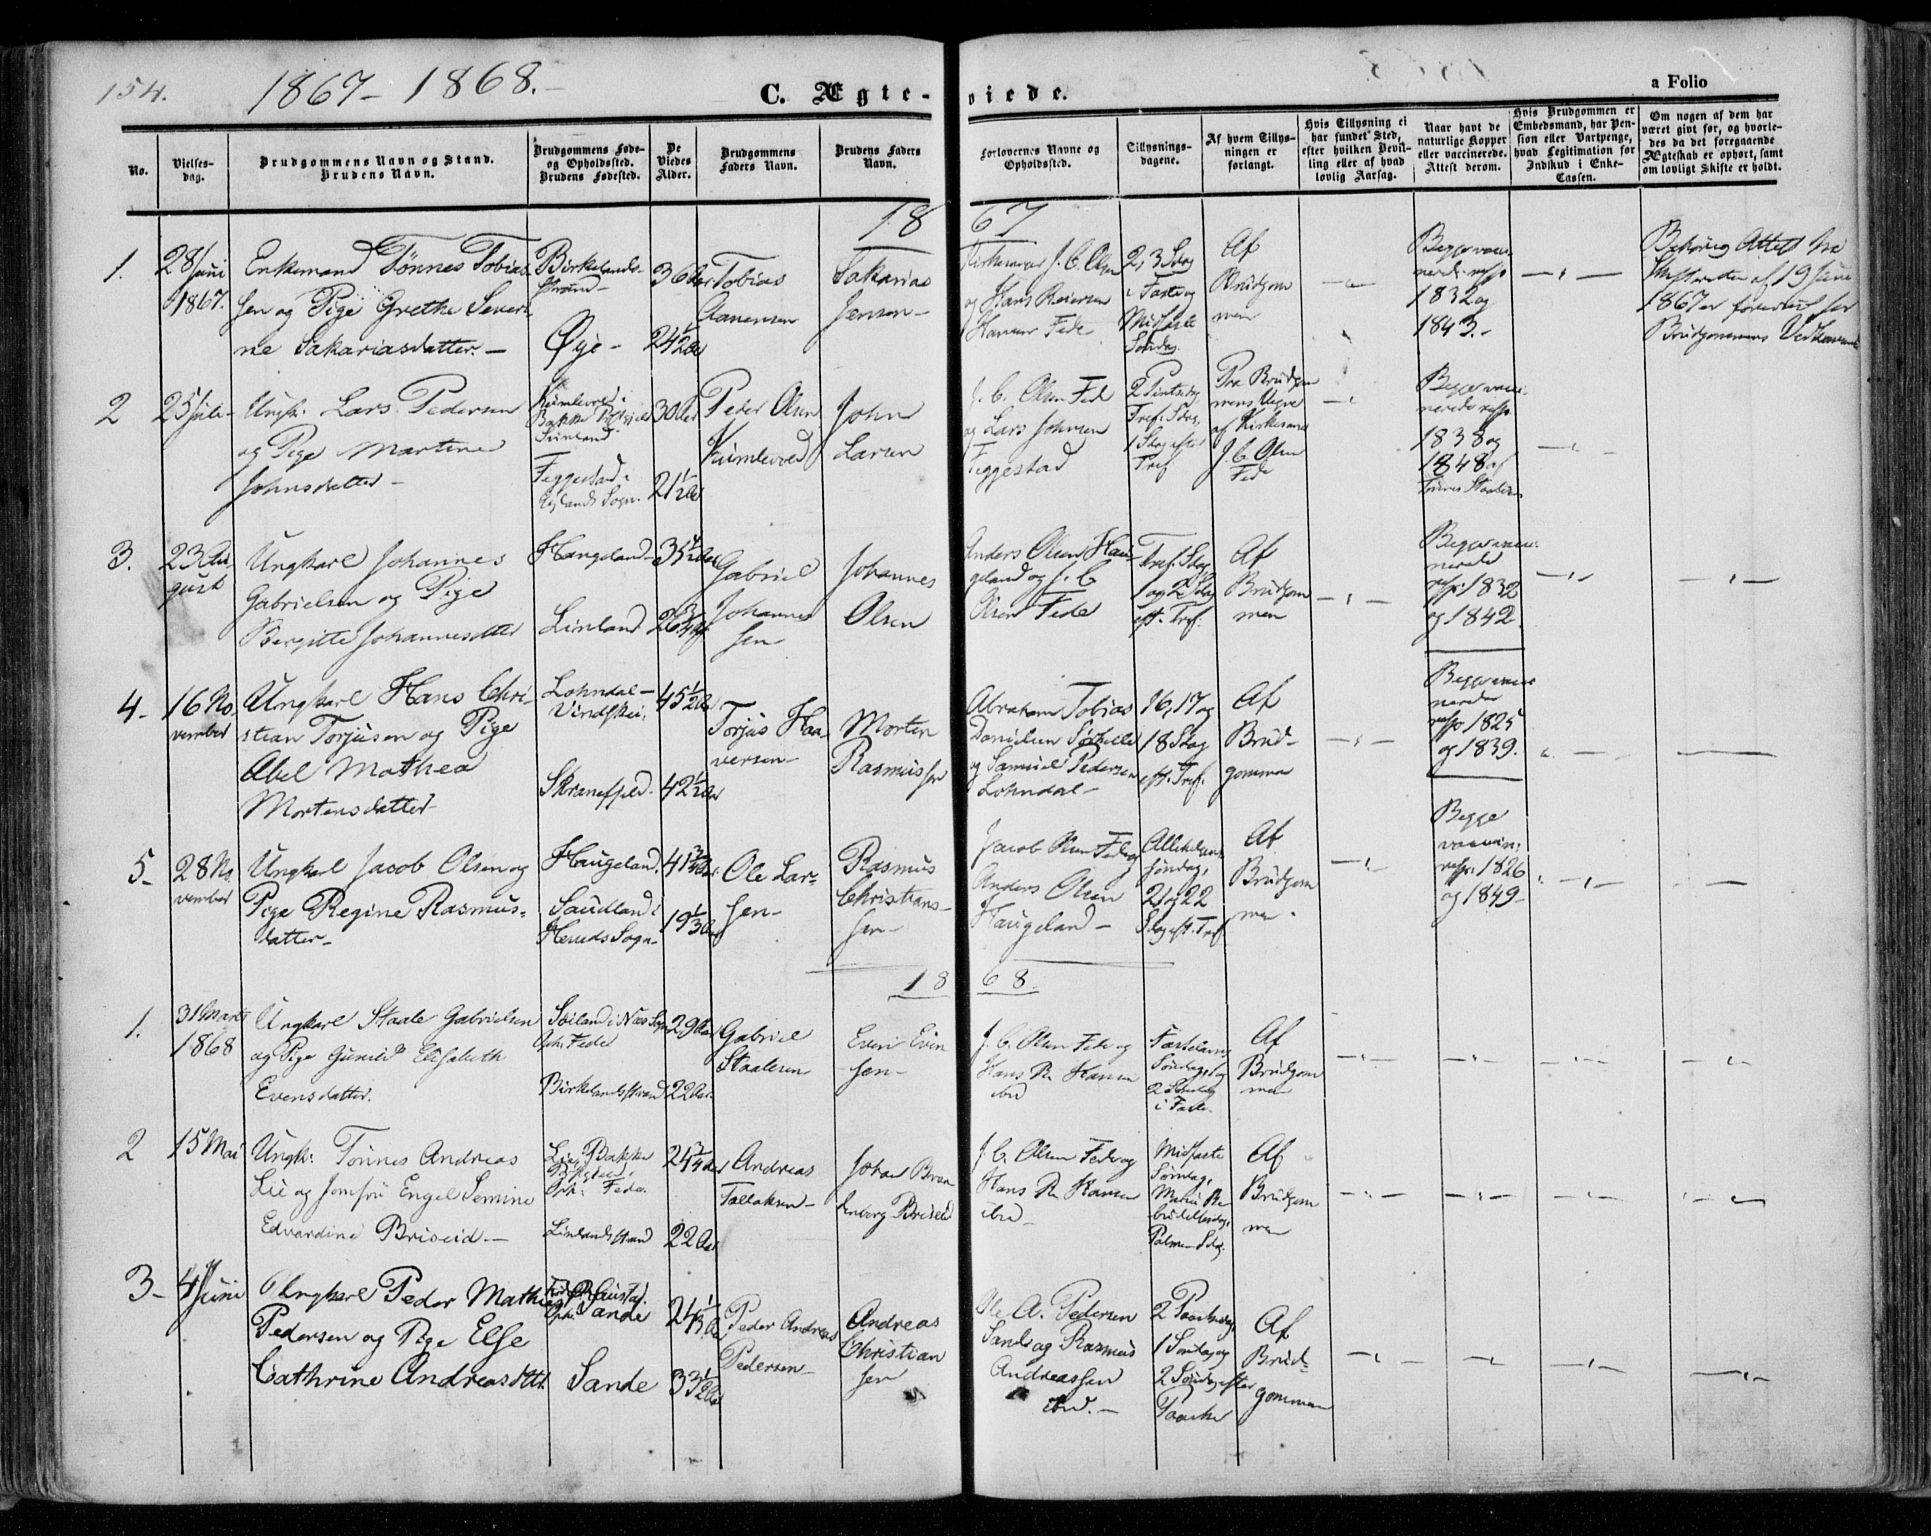 154.
1867 - 1868.
C. Ægteviede.
a Folio
No.
Vielses-
dag.
Brudgommens Navn og Stand.
Brudens Navn.
Brudgommens Føde-
og Opholdssted.
Brudens Fødested.
De
Viedes
Alder.
Brudgommens
Faders Navn.
Brudens Faders
Navn.
Forlovernes Navne og
Opholdssted.
Tillysnings-
dagene.
Af hvem Tillys-
ningen er
forlangt.
Hvis Tillysning ei
har fundet Sted,
efter hvilken Bevil-
ling eller af hvad
lovlig Aarsag.
Naar havt de
naturlige Kopper
eller vaccinerede.
Attest derom.
Hvis Brudgommen er
Embedsmand, har Pen-
sion eller Vartpenge,
hvad Legitimation for
Indskud i Enke-
Cassen.
Om nogen af dem har
været givt før, og hvorle-
des da det foregaaende
Ægteskab er ophørt, samt
om lovligt Skifte er holdt.
1867
1.
28 Juni
1867.
Enkemand Tönnes Tobias
sen og Pige Grethe Severi
ne Sakariasdatter. -
Birkelands-
strand -
Øye -
36 Aar
24 1/2 Aar
Tobias
Aanensen
Sakarias
Jensen -
Kirkesanger J. C. Olsen
og Hans Reiersen
Hansen Fede
2, 3 Sdag
i Faste og
Midfaste
Søndag.
Af
Brudgom
men
Begge vacci
nerede resp
1832 og
1843. -
Behörig Attest fra
Skifteretten af 19 Juni
1867 er forevist for
Brudgommens Vedkommende
2
25 Juli -
Ungk: Lars Pedersen
og Pige Martine
Johnsdatter -
Kumlevold i
Bakke Præstegjeld
Liinland
Feggestad i
Sogn.
30 Aar
21 1/2 Aar
Peder Olsen
Kumlevold
John
Larsen
J. C. Olsen Fede
og Lars Johnsen
Feggestad
2 Pintsedag
Tref. Sdag,
1 Sdag efter
Tref
Paa Brudgom
mens Vegne
af Kirkesang
J. C. Olsen
Fede
Begge vacci
nerede resp.
1838 og
1848 af
3.
23 Au
gust
Ungkarl Johannes
Gabrielsen og Pige
Bergitte Johannesdatter
Haugeland -
Liinland
35 1/2 Aar
26 3/4 Aar
Gabriel
Johannes
sen
Johannes
Olsen
Anders Olsen Hau-
geland og J. C
Olsen Fede
Tref. Sdag,
1 og 2 Sdag
eft. Tref.
Af
Brudgom
men
Begge vacci
nerede
resp. 1832
og 1842.
4 -
16 No
vember
Ungkarl Hans Chri-
stian Torjusen og Pige
Abel Mathea
Mortensdatter -
Lohndal -
Skranefjeld -
45 1/2 Aar
42 1/2 Aar
Torjus Haa
versen -
Morten
Rasmussen
Abraham Tobias
Danielsen
og Samuel Pedersen
Lohndal -
16, 17 og
18 Sdag
eft. Tref.
Af
Brud-
gommen
Begge vacci
nerede
resp 1825
og 1839.
5 -
28 No
vember
Ungkarl Jacob Olsen og
Pige Regine Rasmus-
datter -
Haugeland.
Saudland i
Heruds Sogn -
41 3/4 Aar
19 1/3 Aar
Ole Lar-
sen -
Rasmus
Christians-
sen -
Jacob Olsen Fede og
Anders Olsen
Haugeland -
Allehelgens
søndag,
21 og 22
Sdag eft. Tref
Af
Brudgom
men -
Begge
vaccin.
resp. 1826
og 1849 -
1868.
1.
31 Marts
1868
Ungkarl Staale Gabrielsen
og Pige Gunild Elisabeth
Evensdatter.
Søiland i Næs Sogn
Oph. Fede
Birkelandsstrand
29 Aar
22 Aar
Gabriel
Staalesen
Even Even
sen -
J. C. Olsen Fede og
Hans R. Hansen
ibd
Fastelavns
Søndag, og
2 Søndag
i Faste
Af
Brudgom
men
2
15 Mai
Ungk: Tönnes Andreas
Lie og Jomfru Engel Semine
Edvardine Briseid. -
Lie, Bakke
Oph: Fede.
Liinlandsstrand
24 3/4 Aar
22 Aar
Andreas
Tallaksen -
Johan
Briseid
J. C. Olsen Fede og
Hans R. Hansen
ibd -
Midfaste
Søndag,
Mariæ Be-
budelsesdag,
Palme-Sdag.
Af
Brudgom
men
3 -
4 Juni
Ungkarl Peder Mathias
Pedersen og Pige Else
Cathrine Andreasdtt.
Oph: Sande
Sande
24 1/3 Aar
33 1/2 Aar
Peder Andreas
Pedersen -
Andreas
Christian
sen
Ole A. Pedersen
Sande og Rasmus
Andreassen
ibd. -
2 Paaskedag,
1 Søndag og
2 Søndag efter
Paaske
Af
Brud-
gommen